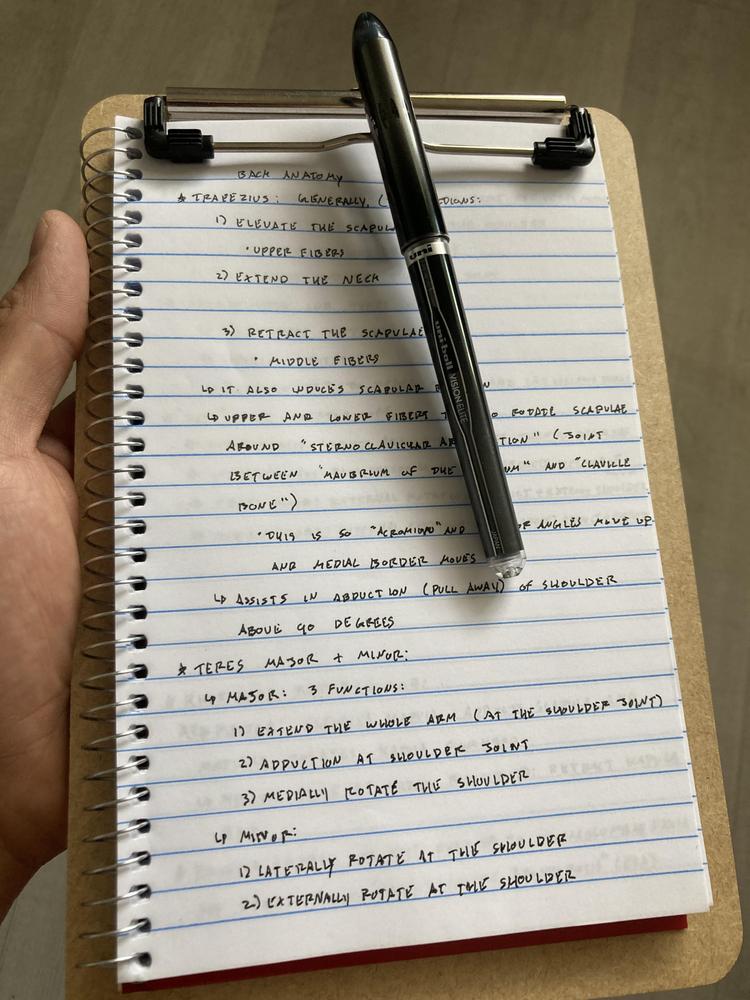 BACK ANATOMY
* TRAPEZIUS: GENERALLY, (
1) ELEVATE THE SCAPUL
• UPPER FIBERS
2) EXTEND THE NECK
3) RETRACT THE SCAPULAE
• MIDDLE FIBERS
↳ IT ALSO INDUCES SCAPULAR
↳ UPPER AND LOWER FIBERS TO ROTATE SCAPULAE
AROUND "STERNOCLAVICULAR TION" (JOINT
BETWEEN "MAUBRIUM OF THE UM" AND "CLAVICLE
BONE")
• THIS IS SO "ACROMION" AND OR ANGLES MOVE UP
AND MEDIAL BORDER MOVES
↳ ASSISTS IN ABDUCTION (PULL AWAY) OF SHOULDER
ABOVE 90 DEGREES
* TERES MAJOR + MINOR:
↳ MAJOR: 3 FUNCTIONS:
1) EXTEND THE WHOLE ARM (AT THE SHOULDER JOINT)
2) ADDUCTION AT SHOULDER JOINT
3) MEDIALLY ROTATE THE SHOULDER
↳ MINOR:
1) LATERALLY ROTATE AT THE SHOULDER
2) EXTERNALLY ROTATE AT THE SHOULDER
uni
uni-ball VISION ELITE